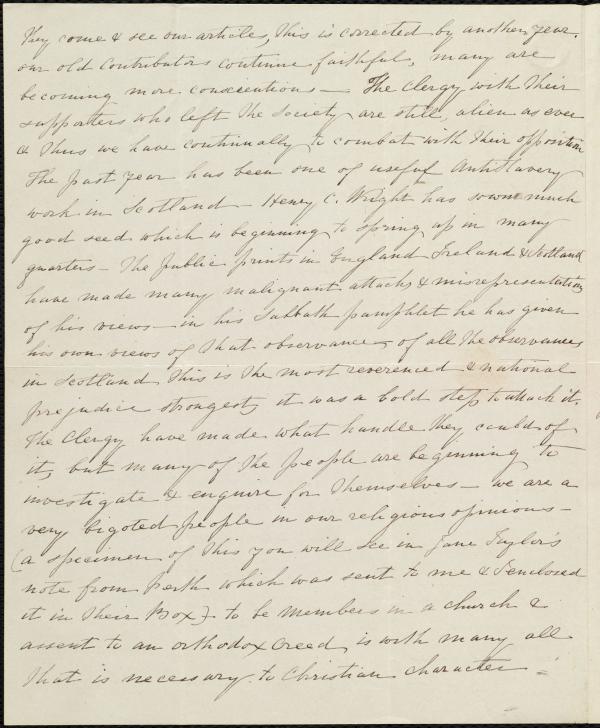 They come & see our articles, this is corrected by another year.
our old Contributors continue faithful, many are
becoming more conscientious — The Clergy with their
supporters who left the Society are still, alien as ever
& thus we have continually to combat with their opposition
The past year has been one of useful AntiSlavery
work in Scotland — Henry C. Wright has sown much
good seed which is beginning to spring up in many
quarters — The public prints in England Ireland & Scotland
have made many malignant attacks & misrepresentations
of his views — in his Sabbath pamphlet he has given
his own views of that observance, of all the observances
in Scotland this is the most reverenced & national
prejudice strongest, it was a bold step to attack it.
The Clergy have made what handle they could of
it, but many of the people are beginning to
investigate & enquire for themselves — we are a
very bigoted people in our religious opinions —
(a specimen of this you will see in Jane Taylor's
note from Perth which was sent to me & I enclosed
it in their Box) to be members in a church &
assent to an orthodox Creed, is with many all
that is necessary to Christian character —